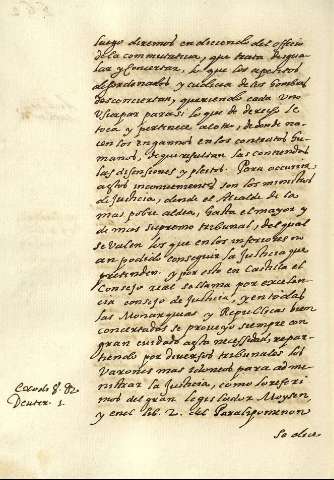 luego diremos en diciendo del officio
de la commutatiua, que trata de igua
lar y concertar, lo que los apetitos
desordenados y cudicia de los hombres
desconciertan, queriendo cada vno
vsurpar para si lo que de derecho le
toca y pertenece al otro, de donde na
cen los engaños en los contratos hu
manos, de que resultan las contiendas
las disensiones y pleitos. Para ocurrir
a estos inconuenientes son los ministros
de Justicia, desde el Alcalde de la
mas pobre aldea, hasta el mayor y
de mas supremo tribunal, del qual
se valen los que en los inferiores no
an podido conseguir la Justicia que
pretenden. y por esto en Castilla el
Consejo real se llama por excelen
cia consejo de Justicia, y en todas
las Monarquias y Republicas bien
concertadas se proueyo siempre con
gran cuidado a esta necessidad, repar
tiendo por diuersos tribunales los
varones mas idoneos para admi
nistrar la Justicia, como lo referi
mos del gran legislador Moysen,
y en el lib. 2. del Paralipomenon
Exodo 18.
Deuter. 1.
se dice